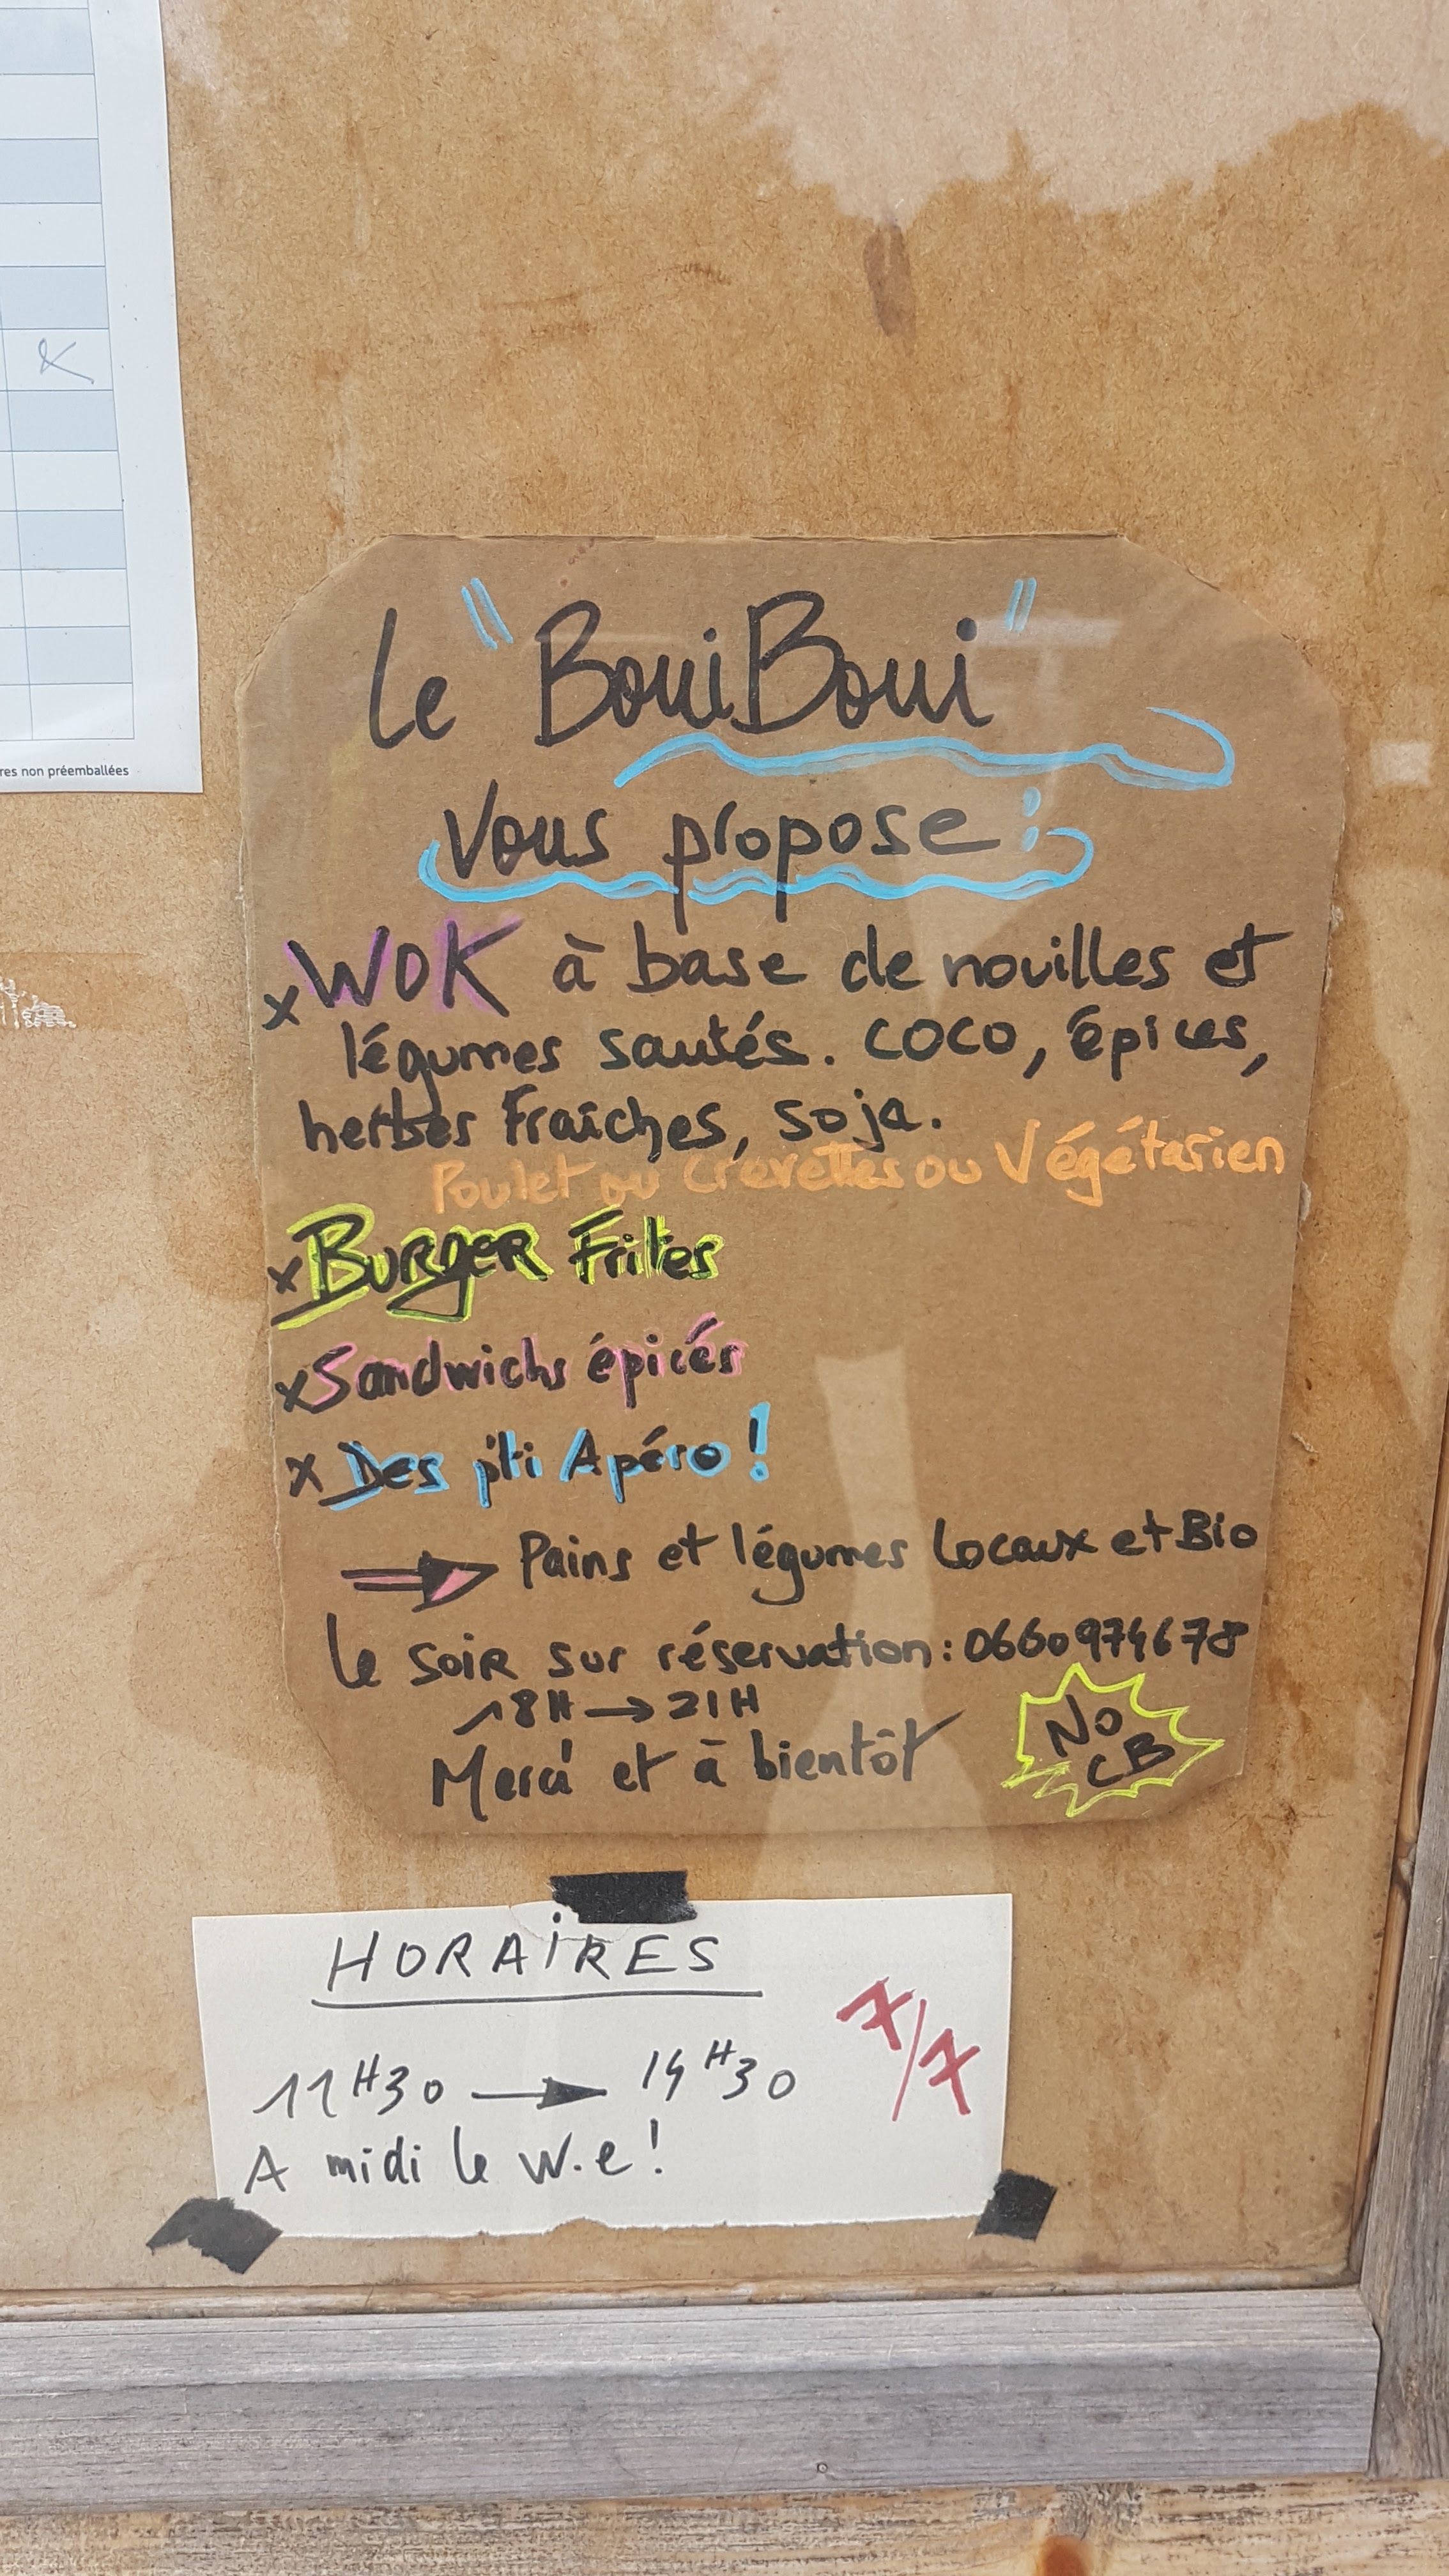 res non préemballées
Le "BouiBoui"
Vous propose :
x WOK à base de nouilles et
légumes sautés. COCO, épices,
herbes Fraîches, soja.
Poulet ou Crevettes ou Végétarien
x BURGER Frites
x Sandwichs épicés
x Des p'ti Apéro !
→ Pains et légumes Locaux et Bio
Le SOIR sur réservation : 0660974678
18H → 21H
Merci et à bientôt
NO
CB
HORAIRES
7/7
11H30 → 14H30
A midi le W.e !